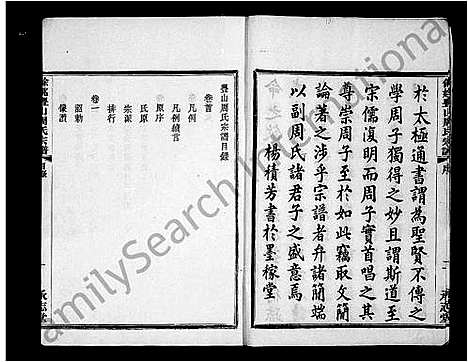 於太極通書謂為聖賢不傳之
學周子獨得之妙且謂斯道至
宋儒復明而周子實首唱之其
尊崇周子至於如此竊取文簡
論著之涉乎宗譜者弁諸簡端
以副周氏諸君子之盛意焉
楊積芳書於墨稼堂
承志堂
疊山周氏宗譜目錄
卷首
凡例
凡例續言
原序
氏原
宗派
排行
卷一
像讚
餘姚疊山周氏宗譜
目錄
一
承志堂
FamilySearch International